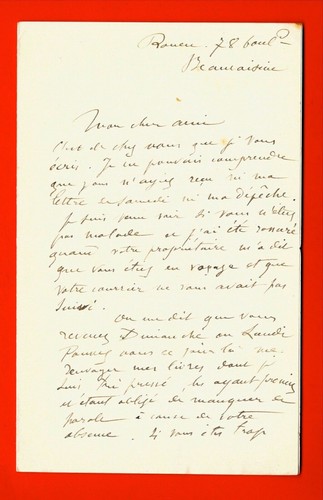 Rouen. 78 boul^d
Beauvaisine
Mon cher ami
C'est de chez vous que je vous
écris. Je ne pouvais comprendre
que vous n'ayez reçu ni ma
lettre de samedi ni ma dépêche.
Je suis venu voir si vous n'étiez
pas malade et j'ai été rassuré
quand votre propriétaire m'a dit
que vous étiez en voyage et que
votre courrier ne vous avait pas
suivi.
On me dit que vous
revenez Dimanche ou Lundi
Pouvez vous ce jour là me
renvoyer mes livres dont je
suis très pressé
étant obligé de manquer de
parole à cause de votre
absence. Si vous êtes trop